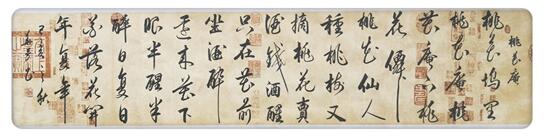 桃花庵
桃花塢里
桃花庵桃
花庵下桃
花僊
桃花仙人
種桃樹又
摘桃花賣
酒錢酒醒
只在花前
坐酒醉
還來花下
眠半醒半
醉日復日
花落花開
年復年